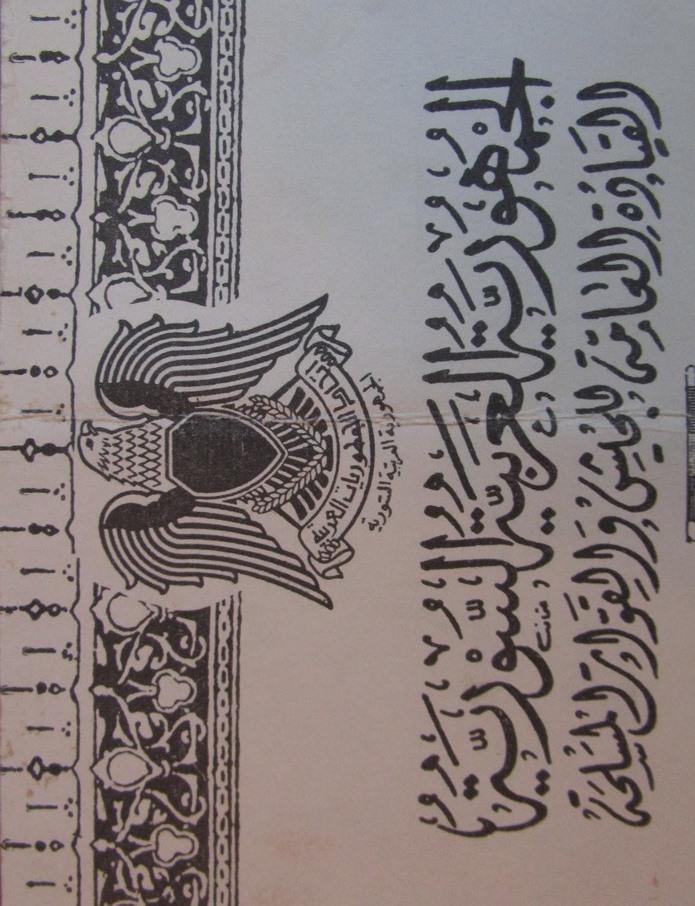 اتحاد الجمهوريات العربية
الجمهورية العربية السورية
الجمهورية العربية السورية
القيادة العامة للجيش والقوات المسلحة